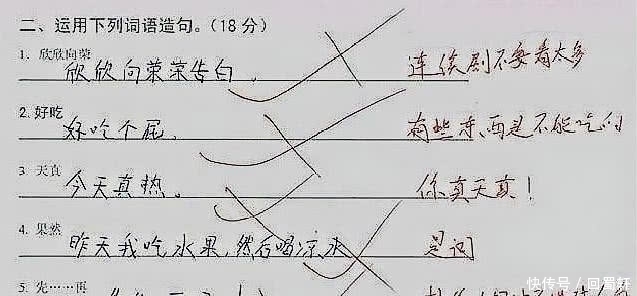 二、运用下列词语造句。(18分)
1. 欣欣向荣 欣欣向荣荣告白。 连续剧不要看太多
2. 好吃 好吃个屁。 有些东西是不能吃的
3 天真 今天真热。 你真天真!
4. 果然 昨天我吃水果,然后喝凉水 是词
5. 先……再
快传号/回眉轩